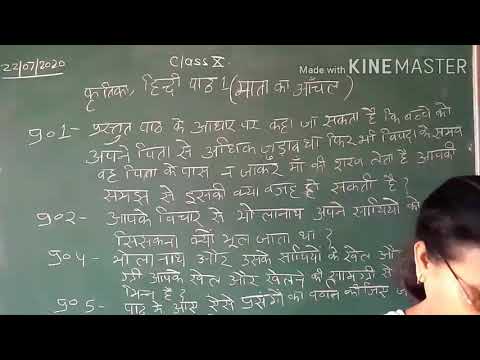 22/07/2020
Class X.
Made with KINEMASTER
कृतिका, हिन्दी पाठ 1 (माता का आँचल)
प्र01- प्रस्तुत पाठ के आधार पर कहा जा सकता है कि बच्चे को
अपने पिता से अधिक जुड़ाव था फिर भी विपदा के समय
वह पिता के पास न जाकर माँ की शरण लेता है आपकी
समझ से इसकी क्या वजह हो सकती है?
प्र02- आपके विचार से भोलानाथ अपने साथियों को
सिसकना क्यों भूल जाता था?
प्र04- भोलानाथ और उसके साथियों के खेल और
आपके खेल और खेलने की सामग्री से
भिन्न है?
प्र05- पाठ में आए ऐसे प्रसंगों का वर्णन कीजिए